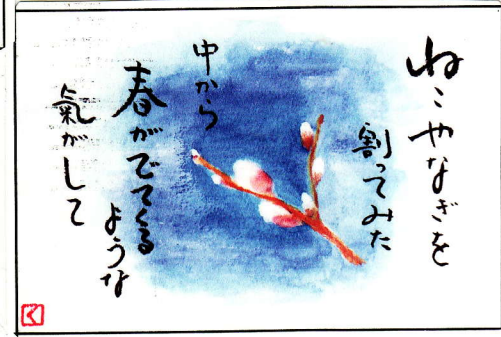 ねこやなぎを
割ってみた
中から
春がでてくる
ような
氣がして
く